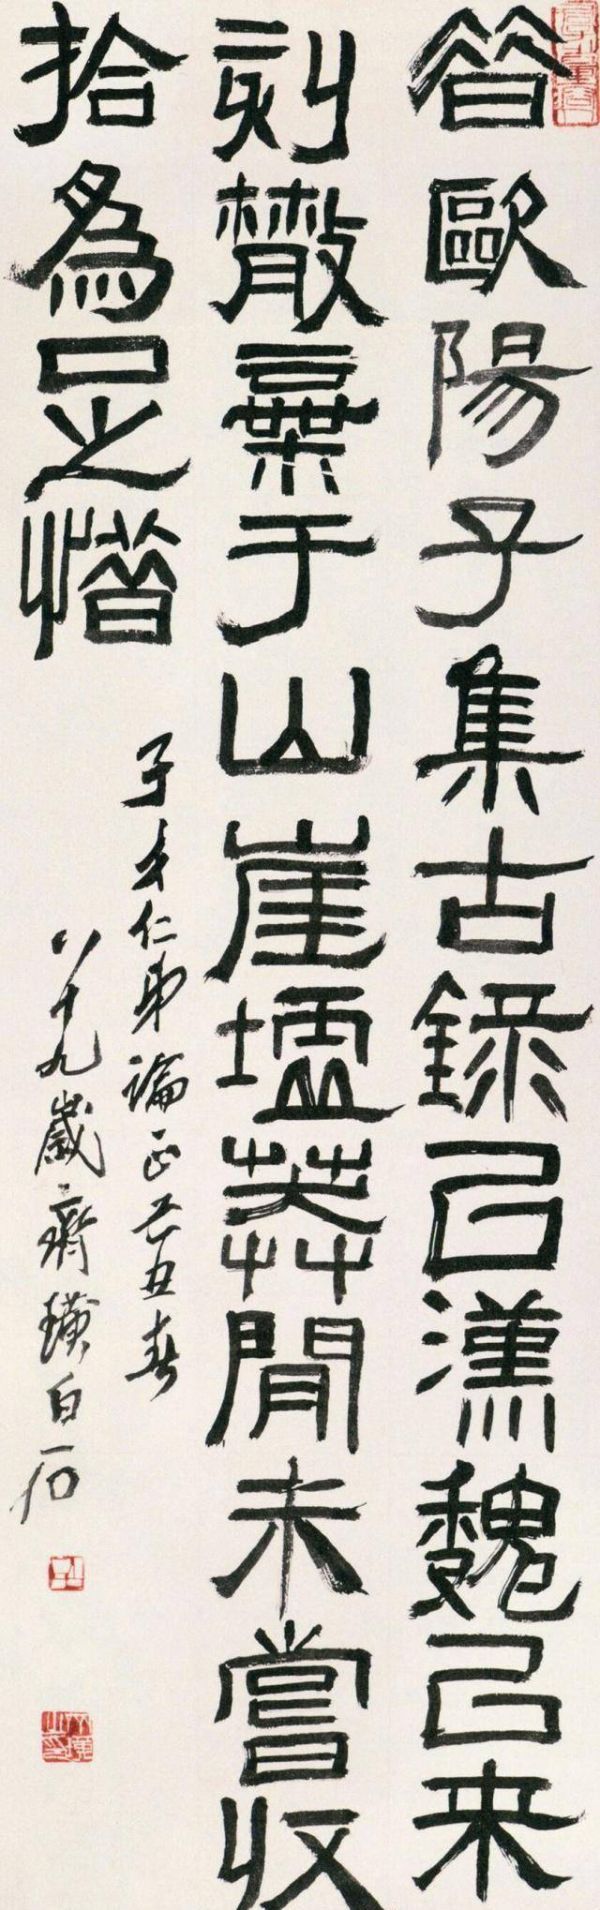 昔歐陽子集古錄已漢魏已来
刻散棄于山崖墟莽閒未嘗收
拾為足惜
子仁弟論正己丑春
八十九歲齊璜白石